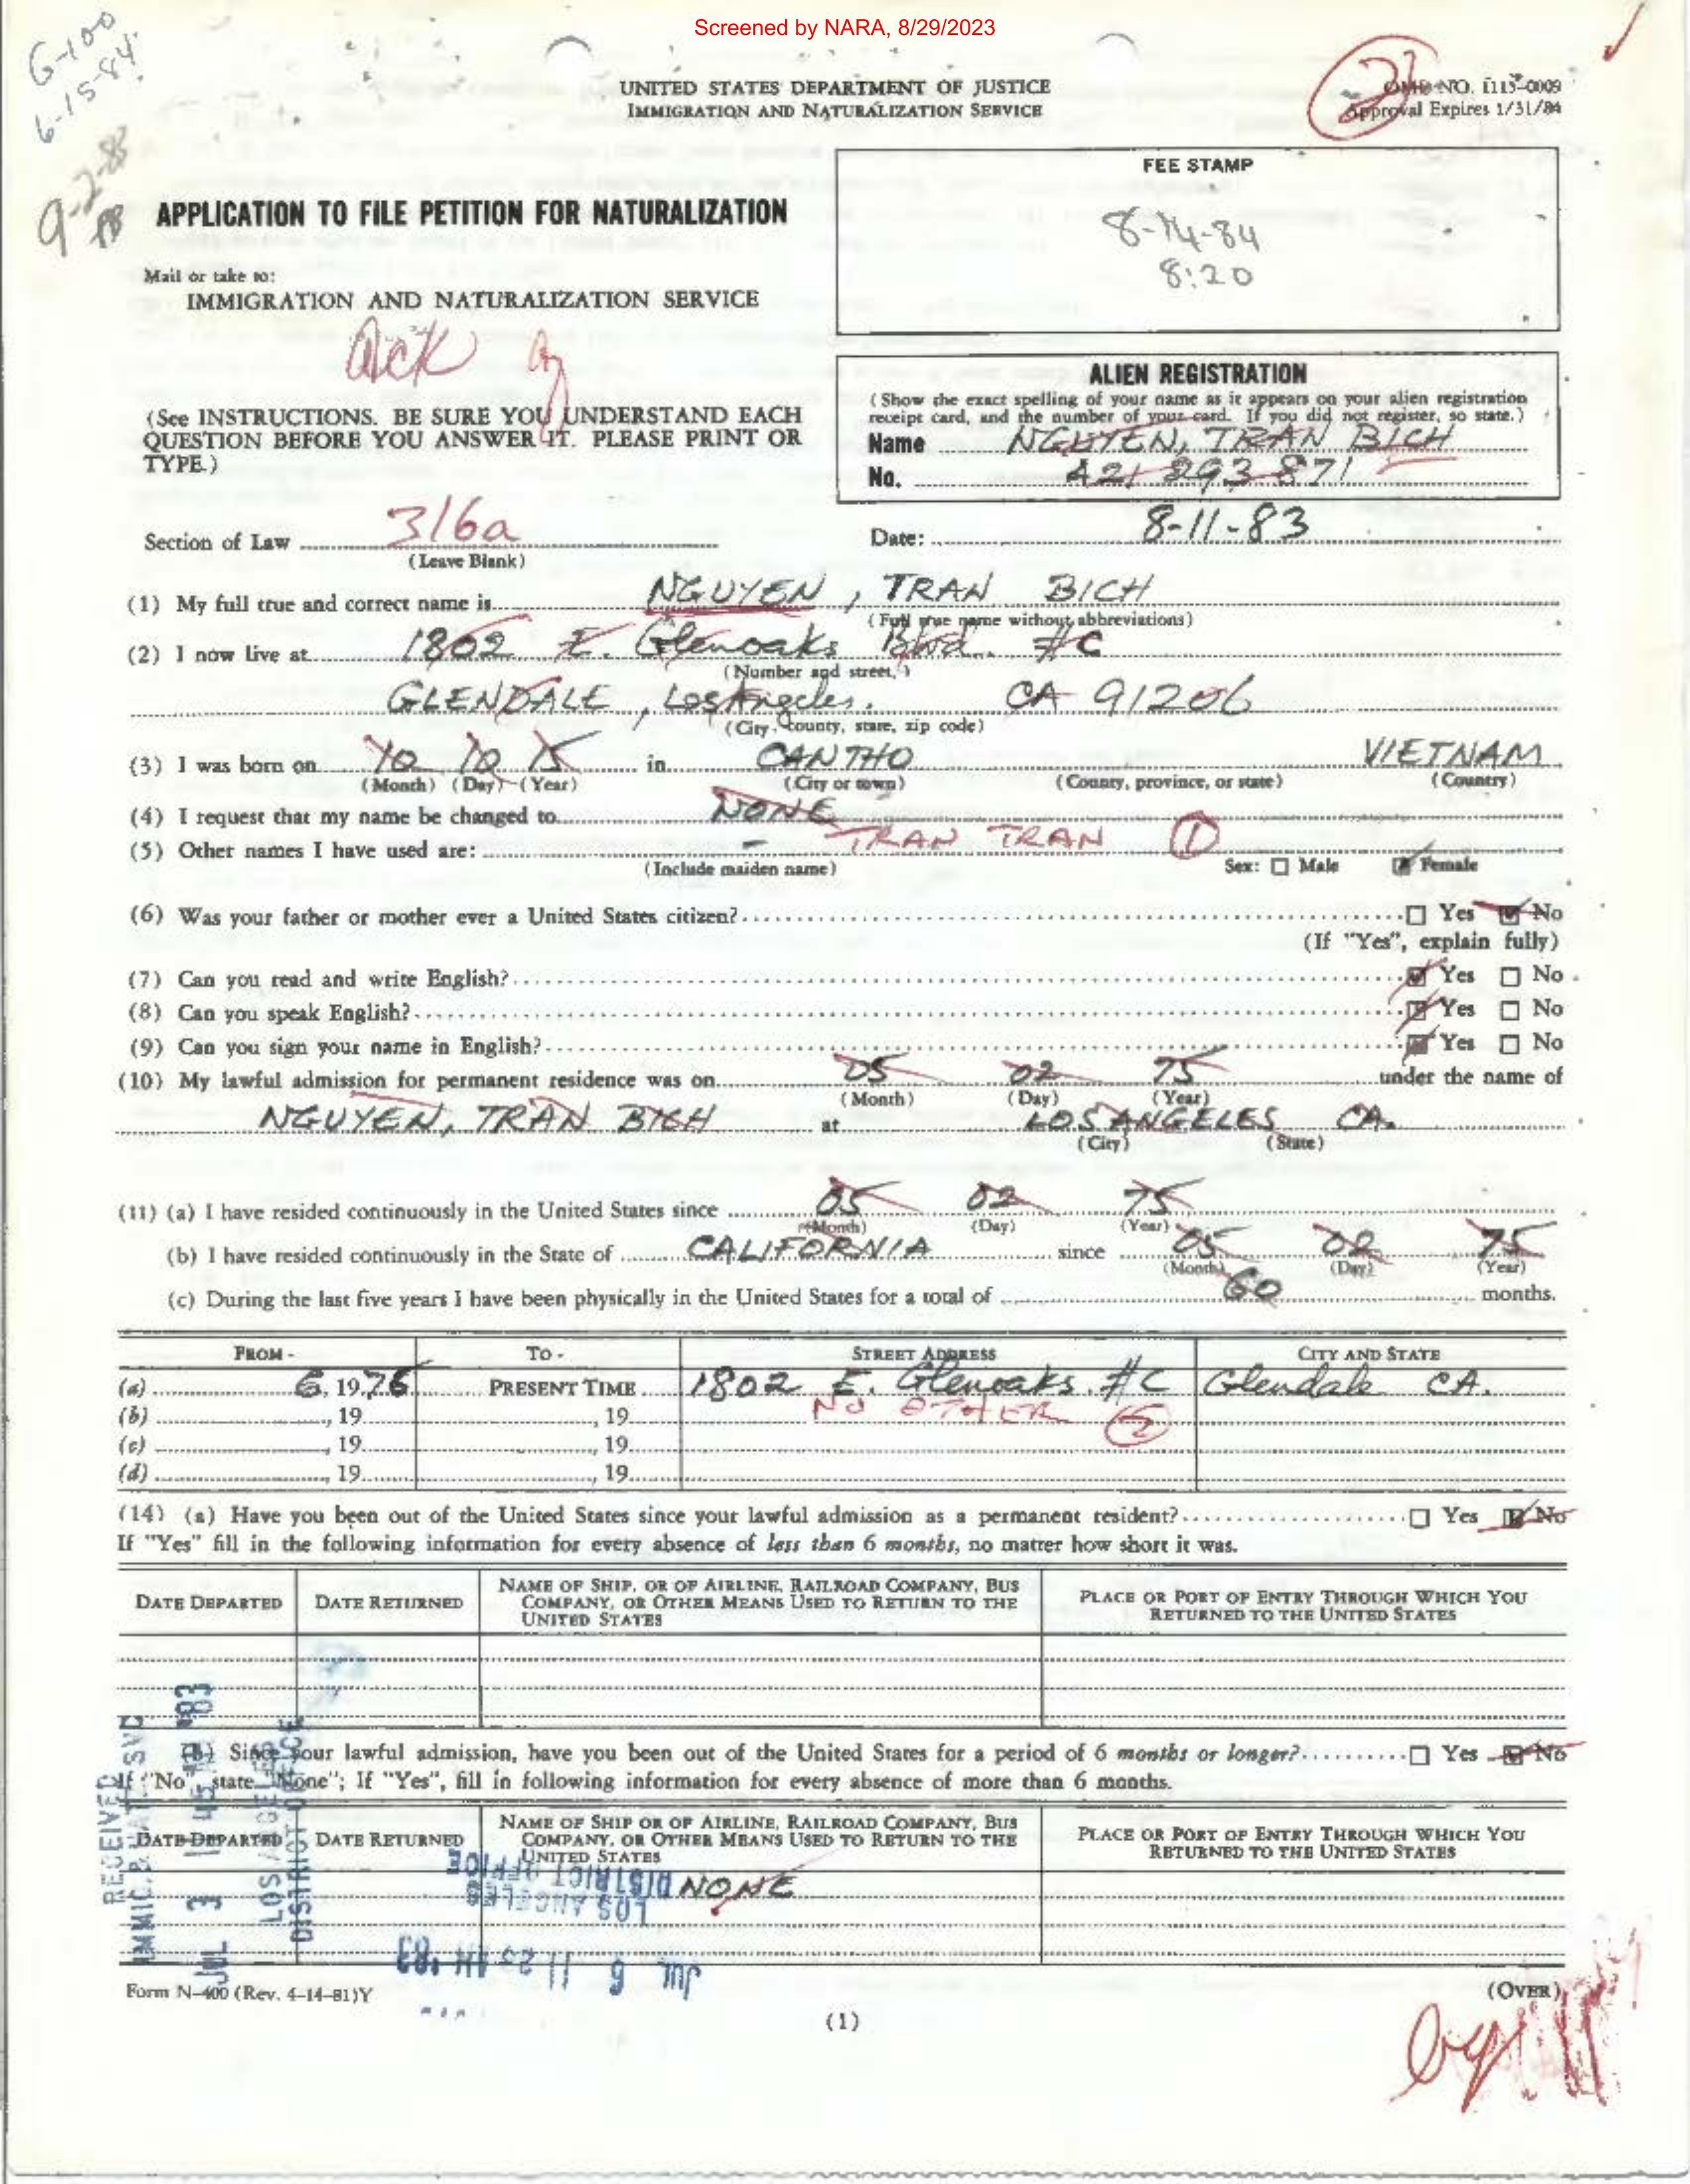 Screened by NARA, 8/29/2023
G-100
6-15-84
9-2-83
UNITED STATES DEPARTMENT OF JUSTICE
IMMIGRATION AND NATURALIZATION SERVICE
2
OMB NO. 1115-0009
Approval Expires 1/31/84
FEE STAMP
8-14-84
8:20
APPLICATION TO FILE PETITION FOR NATURALIZATION
Mail or take to:
IMMIGRATION AND NATURALIZATION SERVICE
ack
(See INSTRUCTIONS. BE SURE YOU UNDERSTAND EACH
QUESTION BEFORE YOU ANSWER IT. PLEASE PRINT OR
TYPE.)
ALIEN REGISTRATION
(Show the exact spelling of your name as it appears on your alien registration
receipt card, and the number of your card. If you did not register, so state.)
Name NGUYEN, TRAN BICH
No. A21 293 871
Section of Law 316a
(Leave Blank)
Date: 8-11-83
(1) My full true and correct name is NGUYEN, TRAN BICH
(Full true name without abbreviations)
(2) I now live at 1802 E. Glenoaks Blvd. #C
(Number and street,)
GLENDALE, Los Angeles, CA 91206
(City, county, state, zip code)
(3) I was born on 10 10 15 in CANTHO VIETNAM
(Month) (Day) (Year) (City or town) (County, province, or state) (Country)
(4) I request that my name be changed to NONE
(5) Other names I have used are: - TRAN TRAN 1
(Include maiden name) Sex: ☐ Male ☑ Female
(6) Was your father or mother ever a United States citizen? ☐ Yes ☑ No
(If "Yes", explain fully)
(7) Can you read and write English? ☑ Yes ☐ No
(8) Can you speak English? ☑ Yes ☐ No
(9) Can you sign your name in English? ☑ Yes ☐ No
(10) My lawful admission for permanent residence was on 05 02 75 under the name of
(Month) (Day) (Year)
NGUYEN, TRAN BICH at LOS ANGELES CA.
(City) (State)
(11) (a) I have resided continuously in the United States since 05 02 75
(Month) (Day) (Year)
(b) I have resided continuously in the State of CALIFORNIA since 05 02 75
(Month) (Day) (Year)
(c) During the last five years I have been physically in the United States for a total of 60 months.
FROM - TO - STREET ADDRESS CITY AND STATE
(a) 6, 1976 PRESENT TIME 1802 E. Glenoaks. #C Glendale CA.
(b) , 19 , 19 NO OTHER
(c) , 19 , 19
(d) , 19 , 19
(14) (a) Have you been out of the United States since your lawful admission as a permanent resident? ☐ Yes ☑ No
If "Yes" fill in the following information for every absence of less than 6 months, no matter how short it was.
DATE DEPARTED DATE RETURNED NAME OF SHIP, OR OF AIRLINE, RAILROAD COMPANY, BUS COMPANY, OR OTHER MEANS USED TO RETURN TO THE UNITED STATES PLACE OR PORT OF ENTRY THROUGH WHICH YOU RETURNED TO THE UNITED STATES
(b) Since your lawful admission, have you been out of the United States for a period of 6 months or longer? ☐ Yes ☑ No
If "No" state "None"; If "Yes", fill in following information for every absence of more than 6 months.
DATE DEPARTED DATE RETURNED NAME OF SHIP OR OF AIRLINE, RAILROAD COMPANY, BUS COMPANY, OR OTHER MEANS USED TO RETURN TO THE UNITED STATES PLACE OR PORT OF ENTRY THROUGH WHICH YOU RETURNED TO THE UNITED STATES
NONE
RECEIVED
IMMIG. & NAT. SVC
JUL 3 '83
LOS ANGELES
DISTRICT OFFICE
DISTRICT OFFICE
LOS ANGELES
JUL 6 11 23 AM '83
Form N-400 (Rev. 4-14-81)Y
(OVER)
(1)